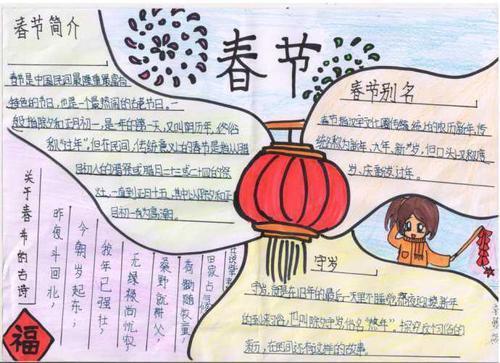 春节
春节简介
春节是中国民间最隆重最富有
特色的节日,也是一个最热闹的古老节日,一
般指除夕和正月初一,是一年的第一天,又叫阴历年,俗
称"过年"。但在民间,传统意义上的春节是指从腊
目初八的腊祭或腊目二十三或二十四的祭
灶,一直到正月十五,其中以除夕和正
目初一为高潮。
春节别名
传统名称为新年、大年、新岁,但口头上又称度
岁、庆新岁、过年。
守岁
守岁,就是在旧年的最后一天夜里不睡觉,熬夜迎接新年
的到来的习俗,也叫除夕守岁,俗名"熬年"。探究这个习俗的
来历,在民间流传这样的故事
关于春节的古诗
昨夜斗回北,
今朝岁起东;
我年已强壮,
无禄尚忧农。
桑野就耕父,
荷锄随牧童;
田家占气候,
福